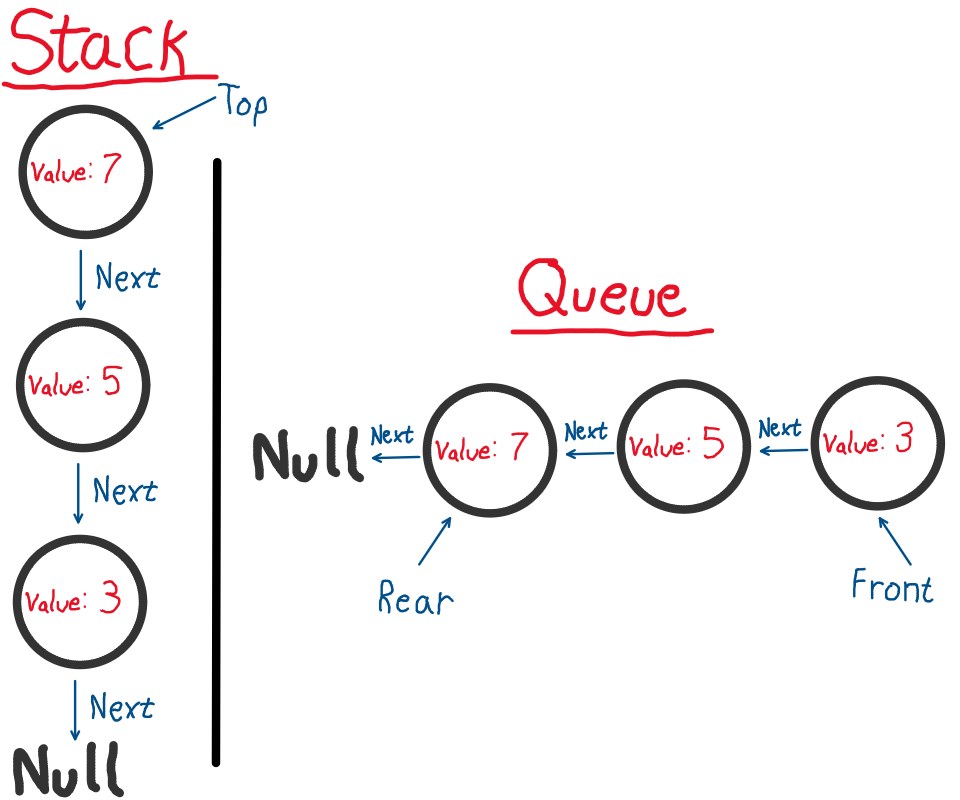 Stack
Top
Value: 7
Next
Value: 5
Next
Value: 3
Next
Null
Queue
Null
Next
Value: 7
Next
Value: 5
Next
Value: 3
Rear
Front